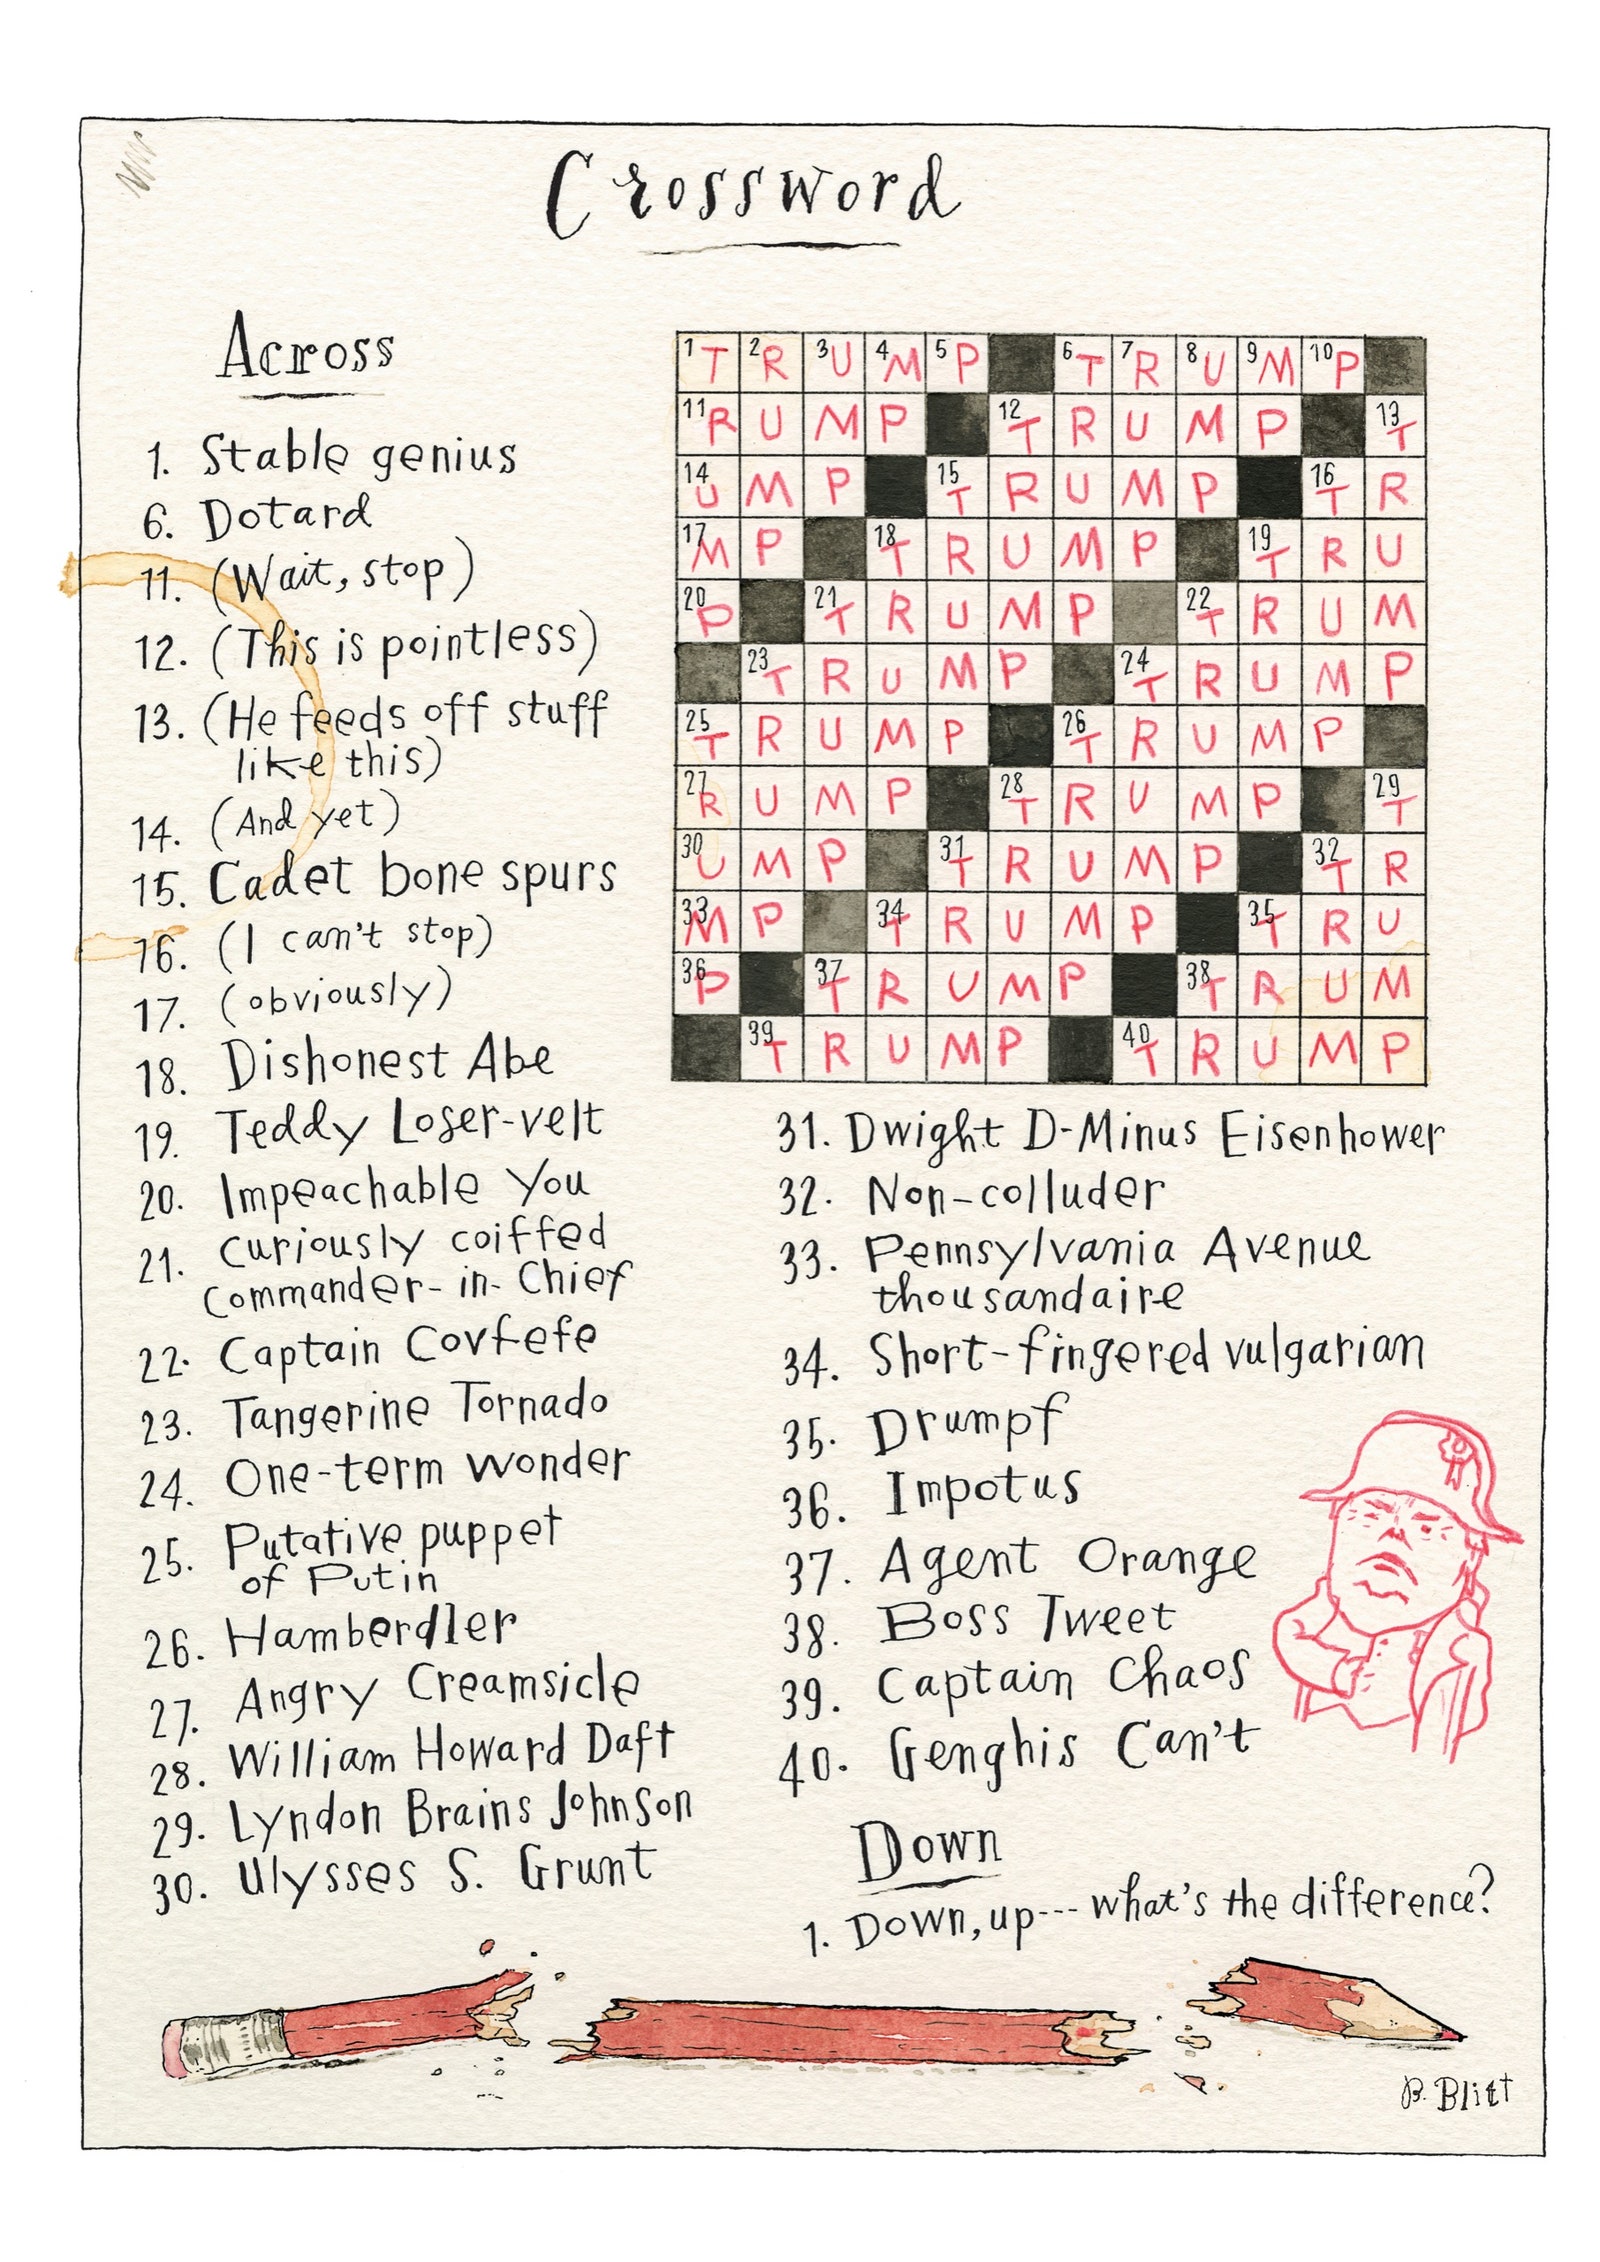 Crossword
Across
1. Stable genius
6. Dotard
11. (Wait, stop)
12. (This is pointless)
13. (He feeds off stuff
like this)
14. (And yet)
15. Cadet bone spurs
16. (I can't stop)
17. (obviously)
18. Dishonest Abe
19. Teddy Loser-velt
20. Impeachable You
21. Curiously coiffed
Commander-in-Chief
22. Captain Covfefe
23. Tangerine Tornado
24. One-term wonder
25. Putative puppet
of Putin
26. Hamberdler
27. Angry Creamsicle
28. William Howard Daft
29. Lyndon Brains Johnson
30. Ulysses S. Grunt
1T 2R 3U 4M 5P 6T 7R 8U 9M 10P
11R U M P 12T R U M P 13T
14U M P 15T R U M P 16T R
17M P 18T R U M P 19T R U
20P 21T R U M P 22T R U M
23T R U M P 24T R U M P
25T R U M P 26T R U M P
27R U M P 28T R U M P 29T
30U M P 31T R U M P 32T R
33M P 34T R U M P 35T R U
36P 37T R U M P 38T R U M
39T R U M P 40T R U M P
31. Dwight D-Minus Eisenhower
32. Non-colluder
33. Pennsylvania Avenue
thousandaire
34. Short-fingered vulgarian
35. Drumpf
36. Impotus
37. Agent Orange
38. Boss Tweet
39. Captain Chaos
40. Genghis Can't
Down
1. Down, up--- what's the difference?
B. Blitt